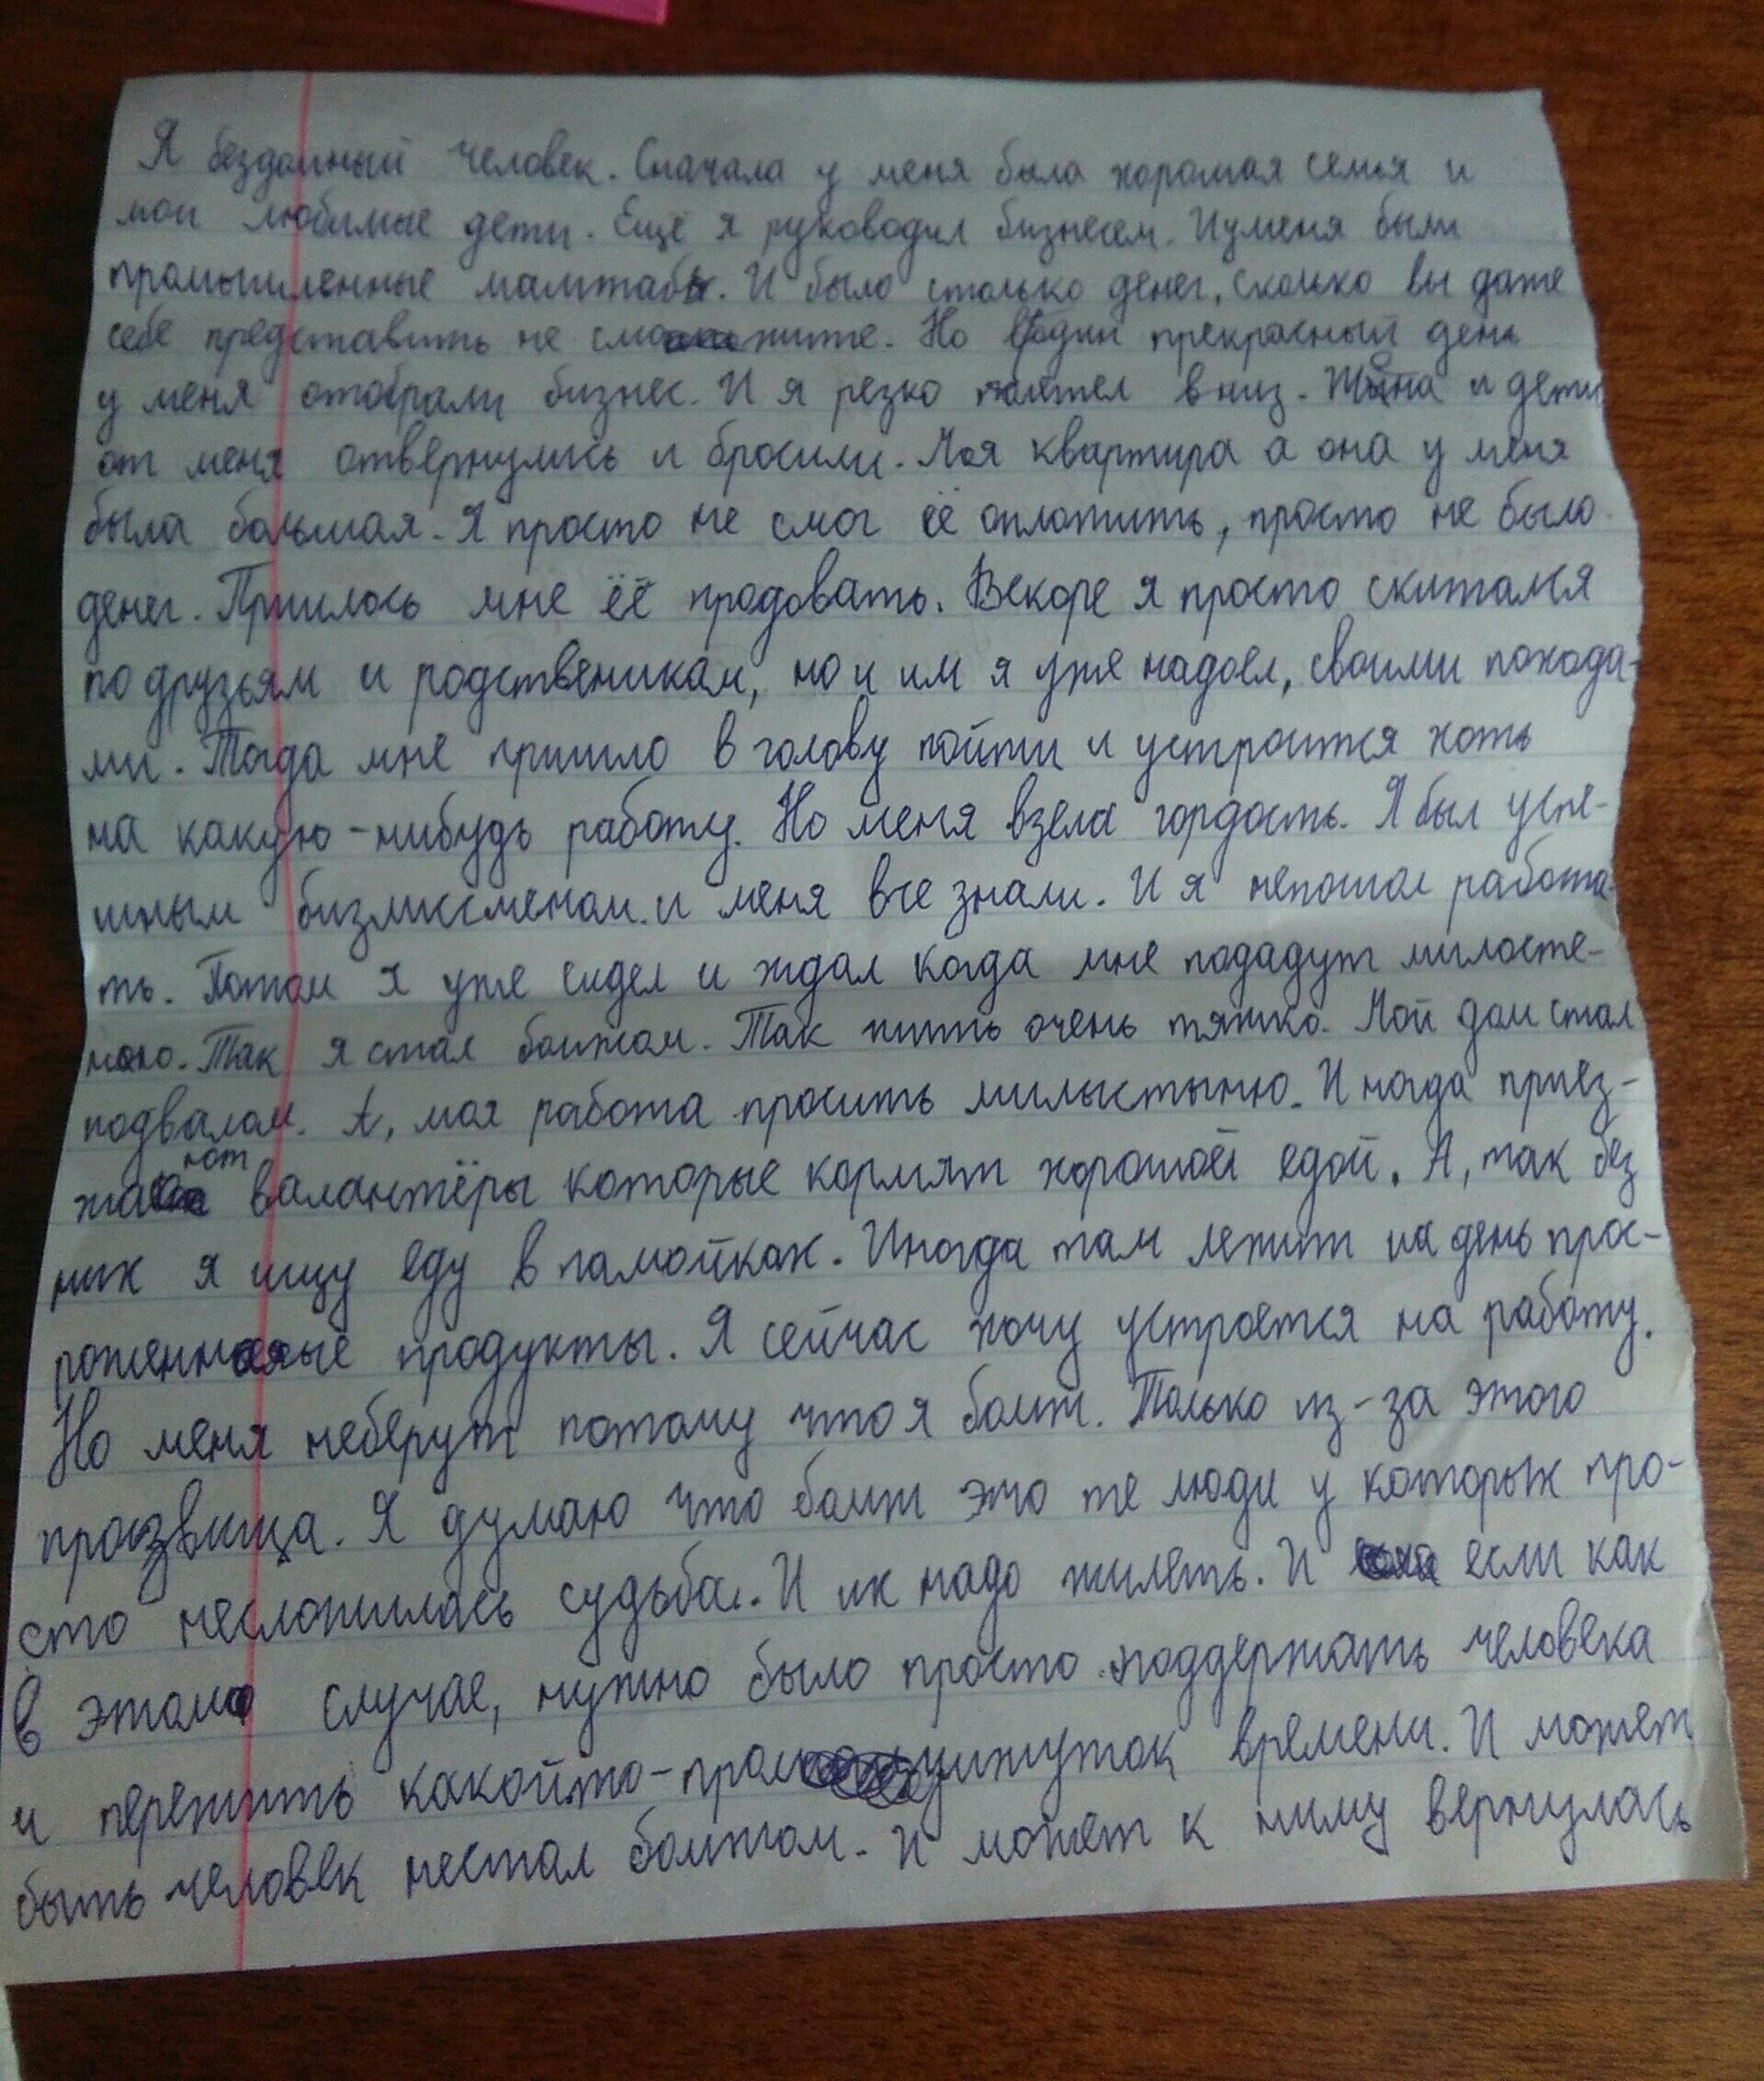 Я бездомный человек. Сначала у меня была хорошая семья и
мои любимые дети. Ещё я руководил бизнесем. И у меня были
промышленные маштабы. И было столько денег, сколько вы даже
себе представить не сможите. Но в один прекрасный день
у меня отобрали бизнес. И я резко полетел вниз. Жена и дети
от меня отвернулись и бросили. Моя квартира а она у меня
была большая. Я просто не смог её оплотить, просто не было
денег. Пришлось мне её продовать. Вскоре я просто скитался
по друзьям и родственикам, но и им я уже надоел, своими похода-
ми. Тогда мне пришло в голову пойти и устроится хоть
на какую-нибудь работу. Но меня взела гордость. Я был успе-
шным бизмиссменом и меня все знали. И я непошол работа-
ть. Потом я уже сидел и ждал когда мне подадут милосте-
ною. Так я стал бомжом. Так жить очень тяжко. Мой дом стал
подвалом. А, моя работа просить милыстыню. Иногда приез-
жают валантёры которые кормят хорошой едой. А, так без
них я ищу еду в помойках. Иногда там лежит на день прос-
роженные продукты. Я сейчас хочу устроется на работу.
Но меня неберут потому что я бомж. Только из-за этого
прозвища. Я думаю что бомж это те люди у которых про-
сто несложилась судьба. И их надо жилеть. И если как
в этом случае, нужно было просто поддержать человека
и пережить какойто-промижуток времени. И может
быть человек нестал бомжом. И может к ниму вернулась